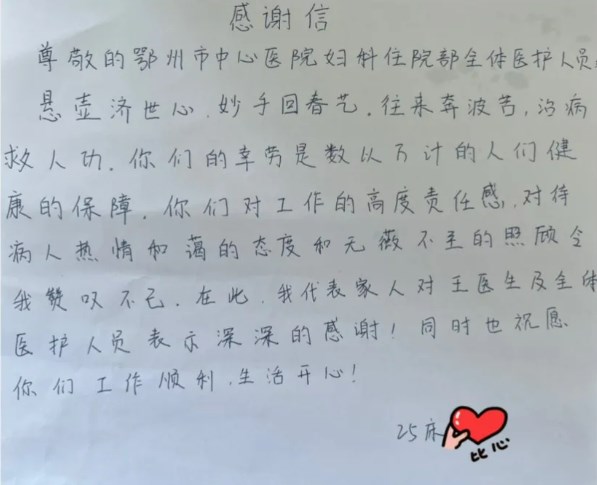 感谢信
尊敬的鄂州市中心医院妇科住院部全体医护人员:
悬壶济世心,妙手回春艺,往来奔波苦,治病
救人功。你们的辛劳是数以万计的人们健
康的保障。你们对工作的高度责任感,对待
病人热情和蔼的态度和无薇不至的照顾令
我赞叹不已。在此,我代表家人对王医生及全体
医护人员表示深深的感谢!同时也祝愿
你们工作顺利,生活开心!
25床
比心